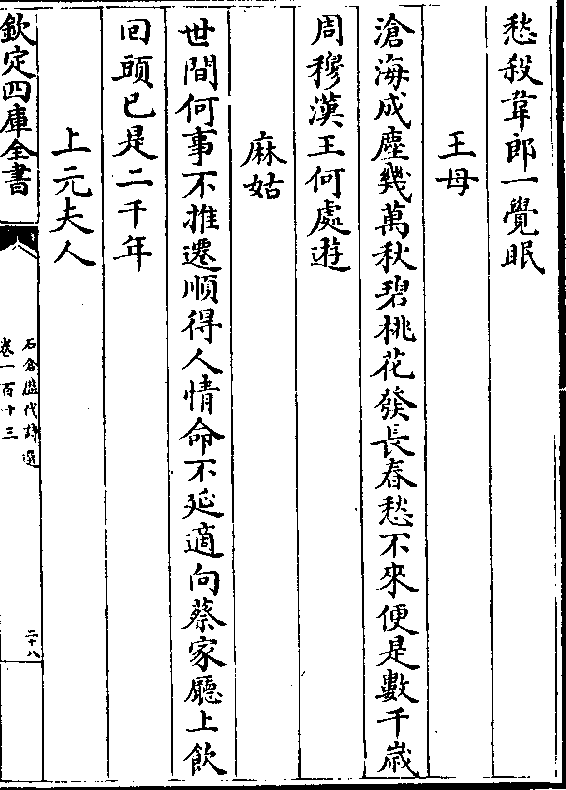 愁殺韋郎一覺眠
王母
滄海成塵幾萬秋碧桃花發長春愁不來便是數千歲
周穆漢王何處遊
麻姑
世間何事不推遷順得人情命不延適向蔡家廳上飲
回頭已是二千年
上元夫人
欽定四庫全書
石倉歴代詩選
卷一百十三
二十八